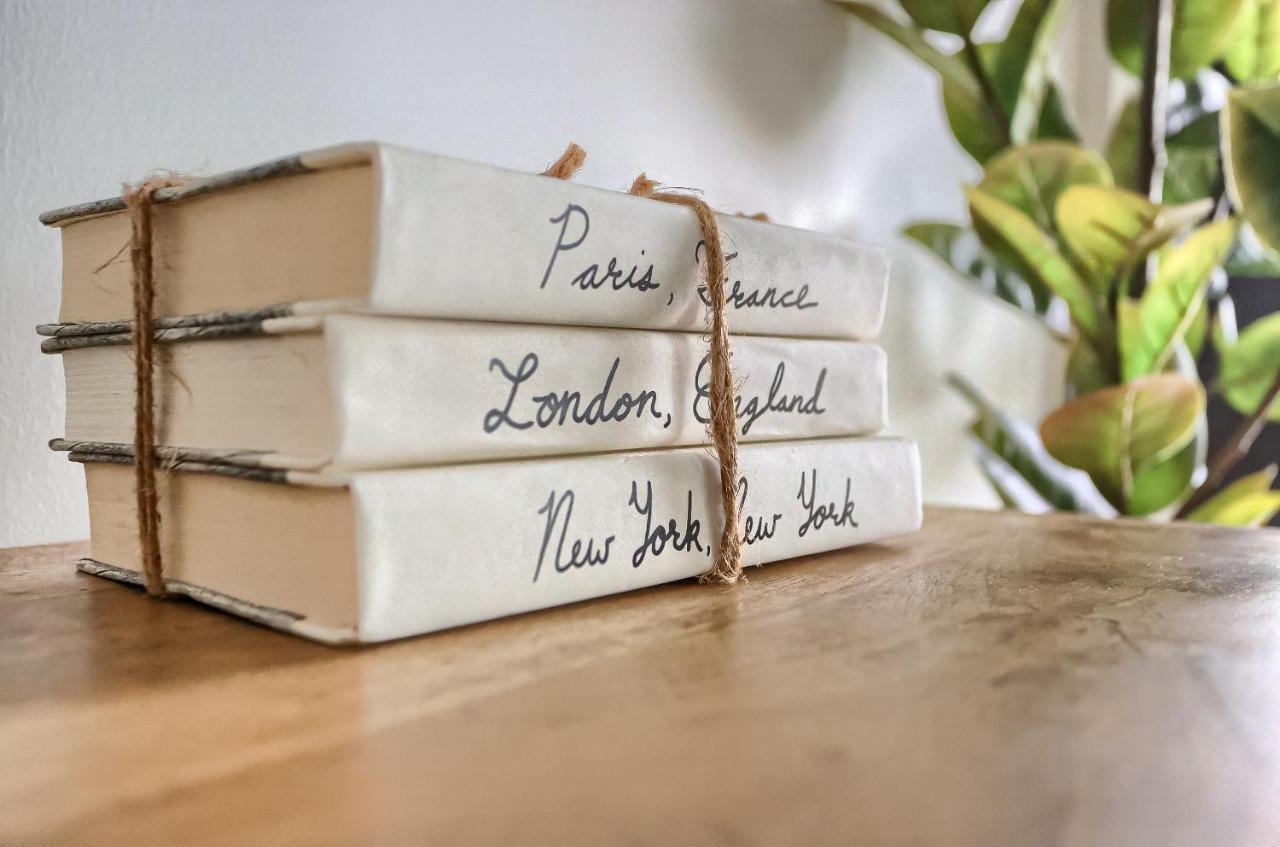 Paris, France
London, England
New York, New York